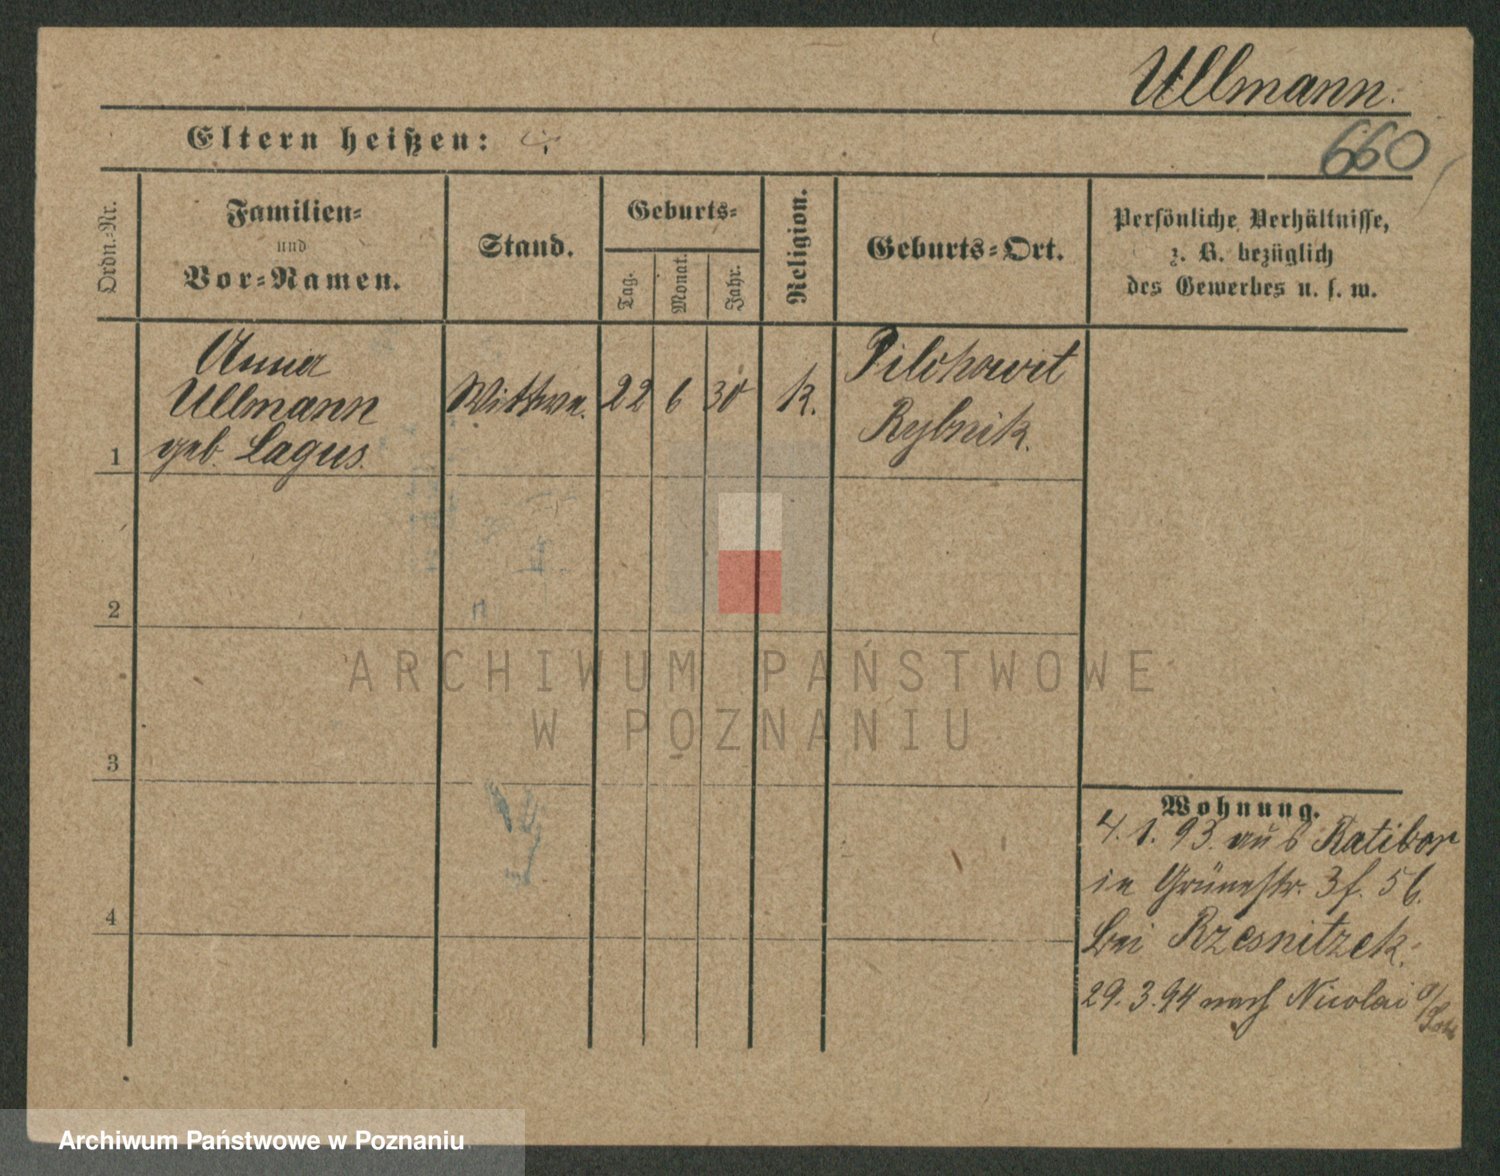 Ullmann.
660
Eltern heißen:
Ordn.-Nr.
Familien-
und
Vor-Namen.
Stand.
Geburts-
Tag.
Monat.
Jahr.
Religion.
Geburts-Ort.
Persönliche Verhältnisse,
z. B. bezüglich
des Gewerbes u. s. w.
1
Anna
Ullmann
geb. Lagus.
Wittwe.
22
6
30
K.
Pilchowit
Rybnik.
2
3
4
Wohnung.
4. 1. 93. aus Ratibor
in Grünestr. 3 f. 56.
bei Rzesnitzek.
29. 3. 94 nach Nicolai
ARCHIWUM PAŃSTWOWE
W POZNANIU
Archiwum Państwowe w Poznaniu